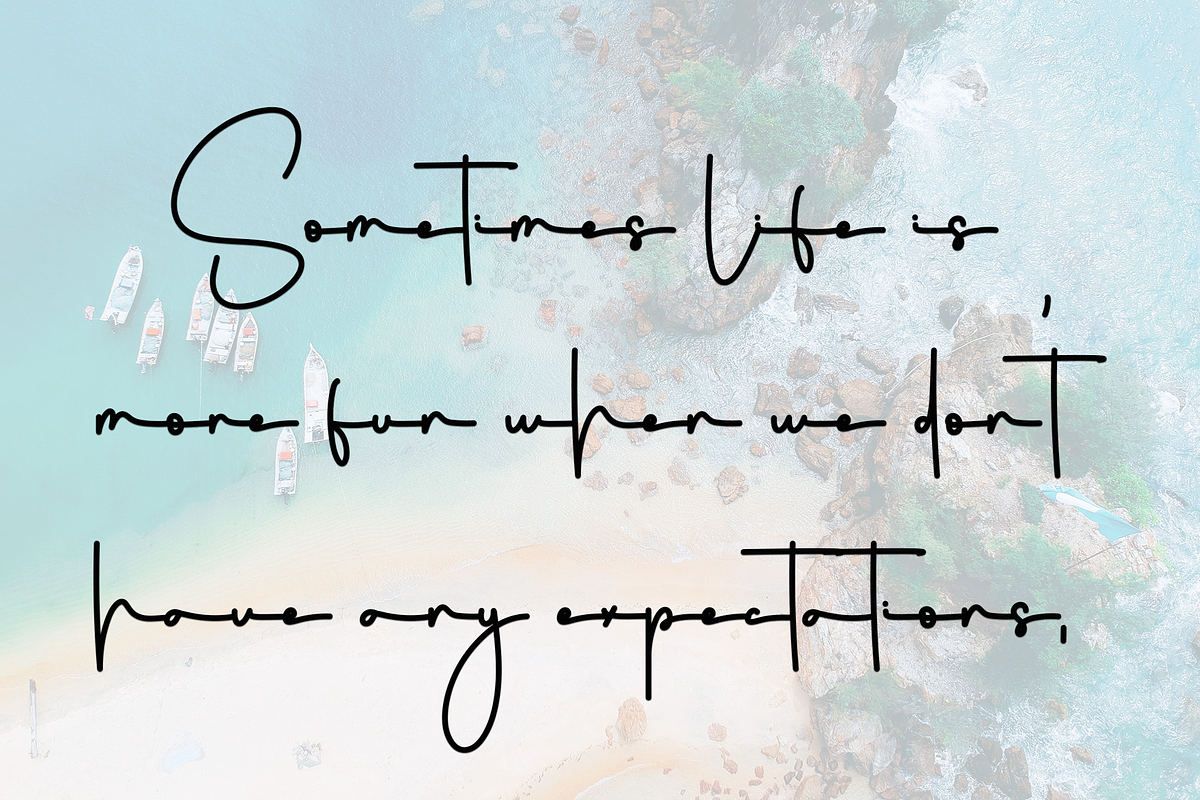 Sometimes Life is
more fun when we don't
have any expectations,